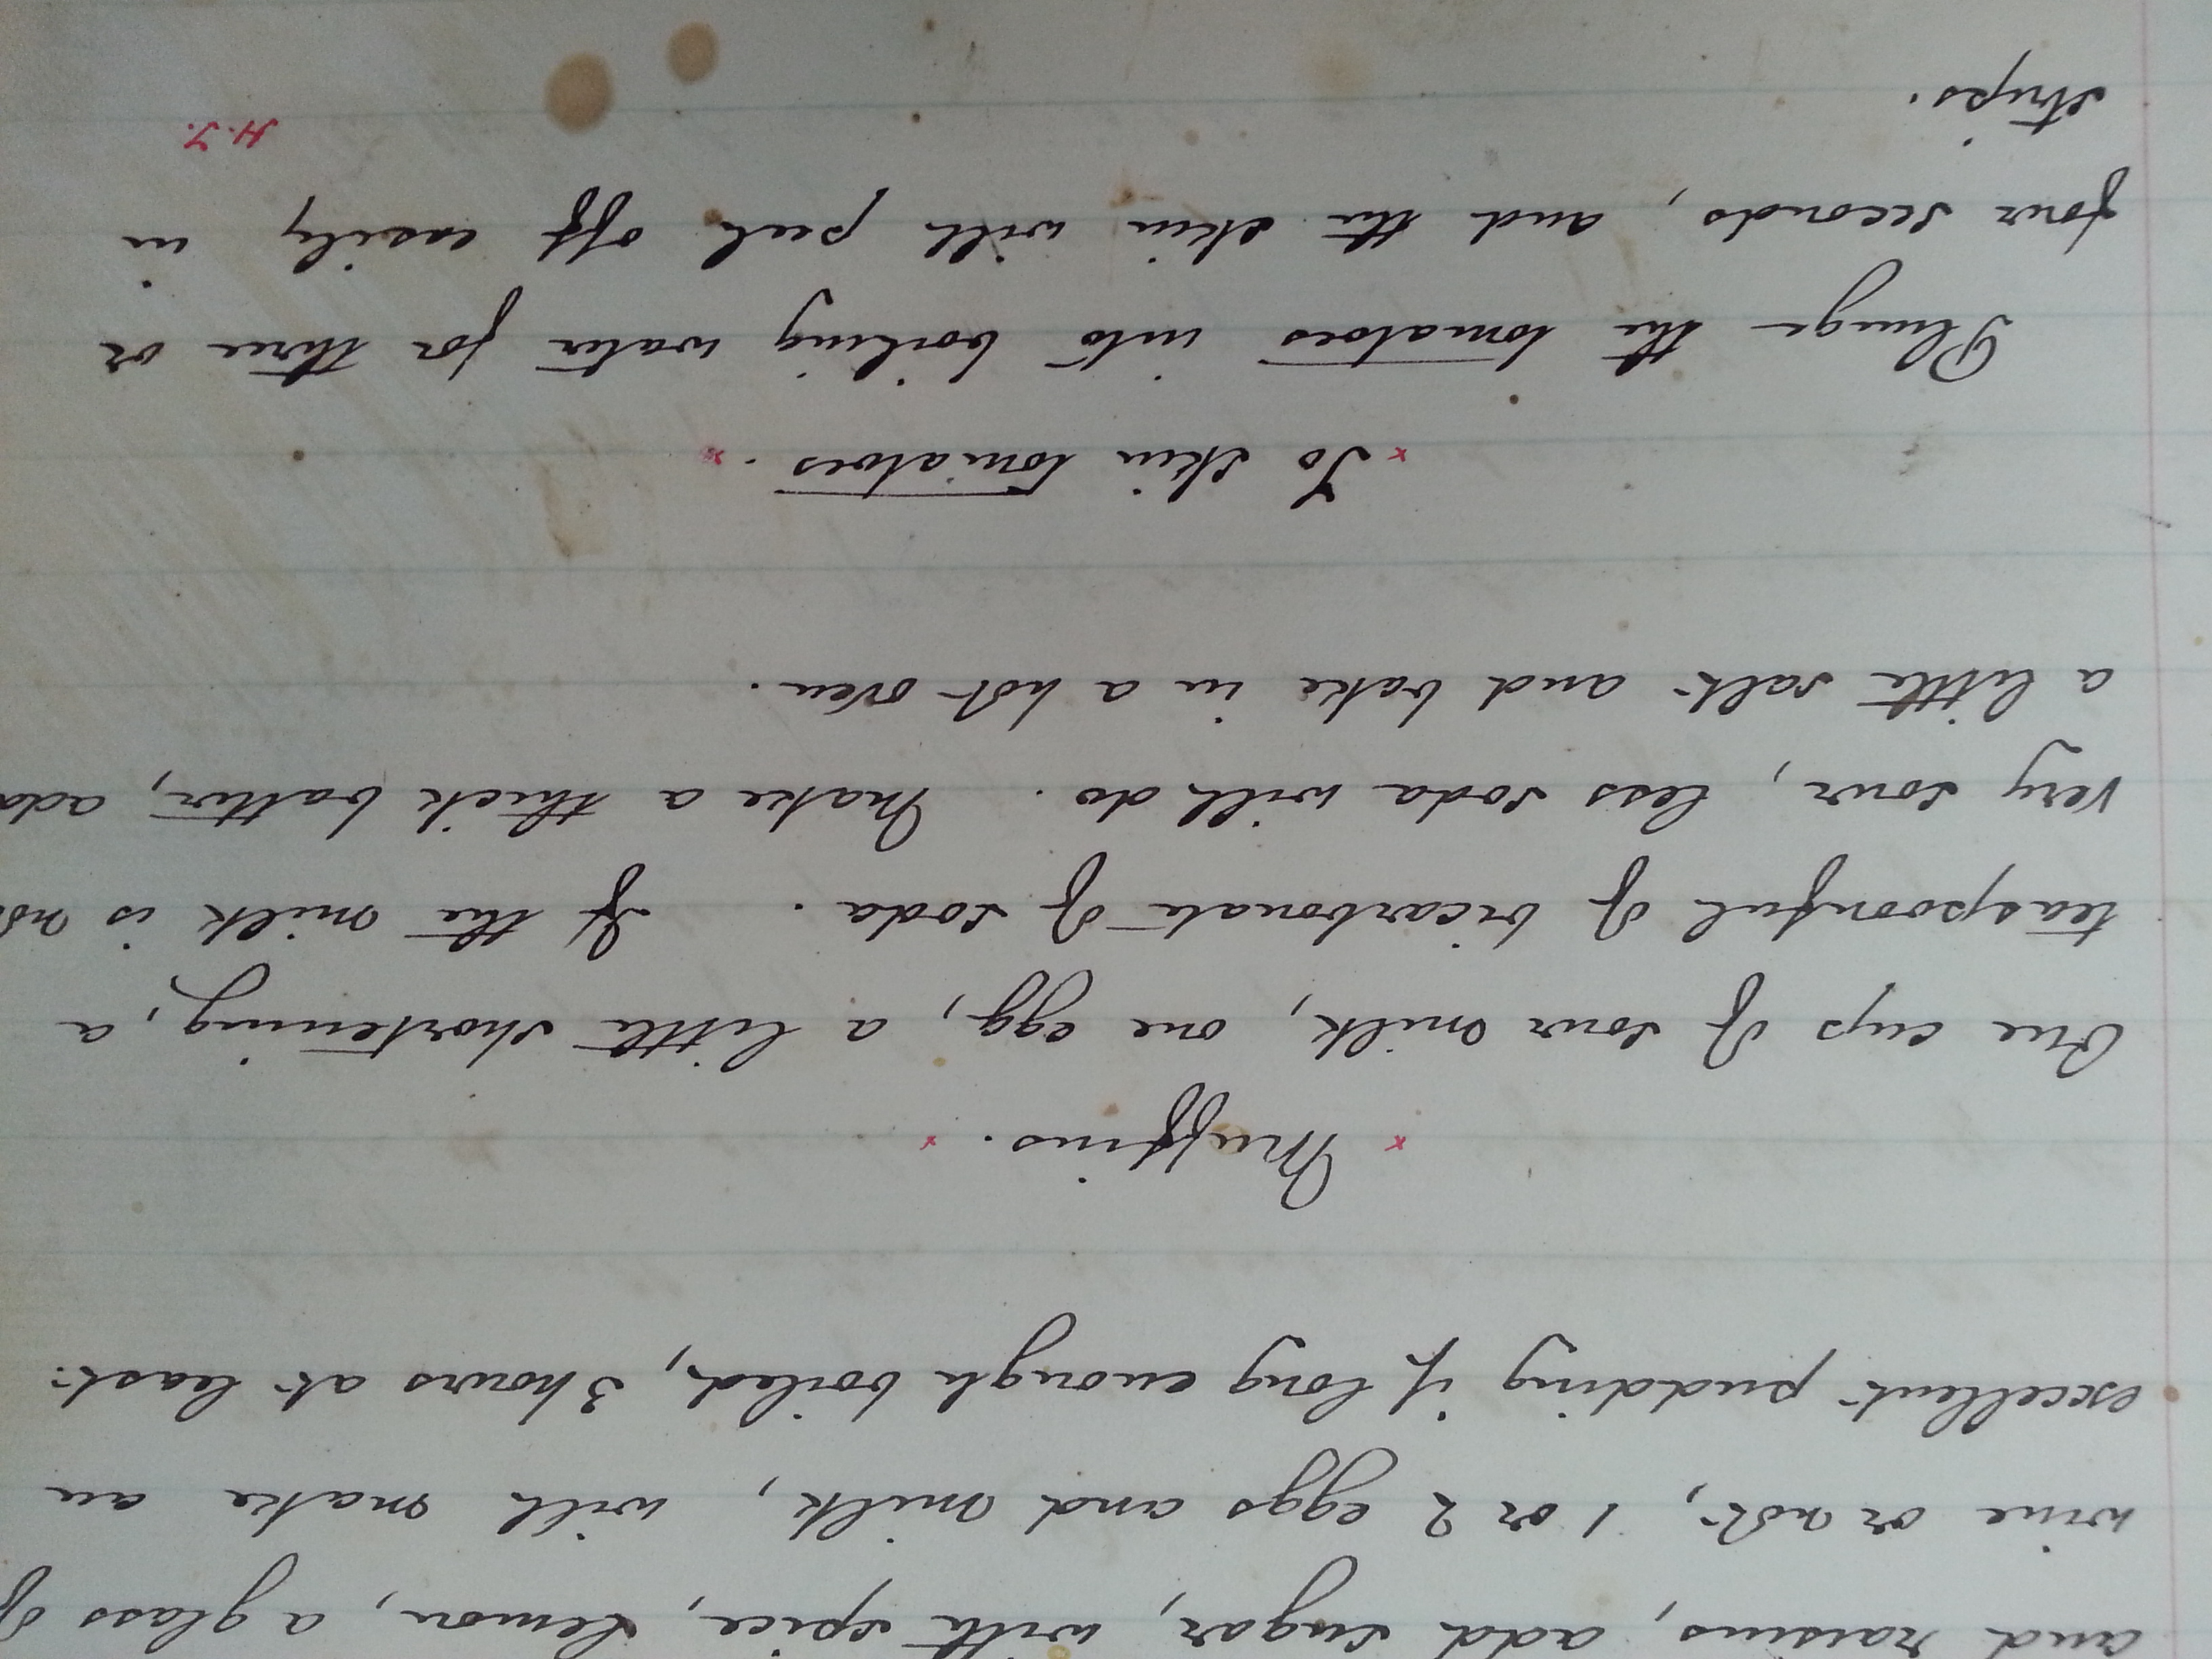 and raisins, add sugar, with spice, lemon, a glass of
wine or not, 1 or 2 eggs and milk, will make an
excellent pudding if long enough boiled, 3 hours at least.
x Muffins. x
One cup of sour milk, one egg, a little shortening, a
teaspoonful of bicarbonate of soda. If the milk is not
very sour, less soda will do. Make a thick batter, add
a little salt and bake in a hot oven.
x To skin tomatoes. x
Plunge the tomatoes into boiling water for three or
four seconds, and the skin will peel off easily in
strips.
H.T.